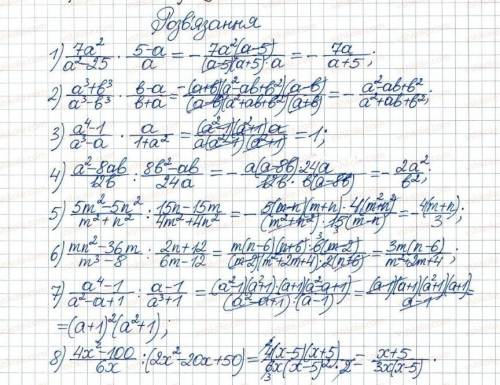 Розв'язання
1) 7a²/(a²-25) · (5-a)/a = -7a²(a-5)/((a-5)(a+5)·a) = -7a/(a+5);
2) (a³+b³)/(a³-b³) · (b-a)/(b+a) = -(a+b)(a²-ab+b²)(a-b)/((a-b)(a²+ab+b²)(a+b)) = -(a²-ab+b²)/(a²+ab+b²);
3) (a⁴-1)/(a³-a) · a/(1+a²) = (a²-1)(a²+1)a/(a(a²-1)(a²+1)) = 1;
4) (a²-8ab)/12b : (8b²-ab)/24a = -a(a-8b)·24a/(12b·b(a-8b)) = -2a²/b²;
5) (5m²-5n²)/(m²+n²) : (15n-15m)/(4m²+4n²) = -5(m-n)(m+n)·4(m²+n²)/((m²+n²)·15(m-n)) = -4(m+n)/3;
6) (mn²-36m)/(m³-8) : (2n+12)/(6m-12) = m(n-6)(n+6)·6(m-2)/((m-2)(m²+2m+4)·2(n+6)) = 3m(n-6)/(m²+2m+4);
7) (a⁴-1)/(a²-a+1) : (a-1)/(a³+1) = (a²-1)(a²+1)·(a+1)(a²-a+1)/((a²-a+1)·(a-1)) = (a-1)(a+1)(a²+1)(a+1)/(a-1)
=(a+1)²(a²+1);
8) (4x²-100)/6x : (2x²-20x+50) = 4(x-5)(x+5)/(6x(x-5)²·2) = (x+5)/(3x(x-5)).